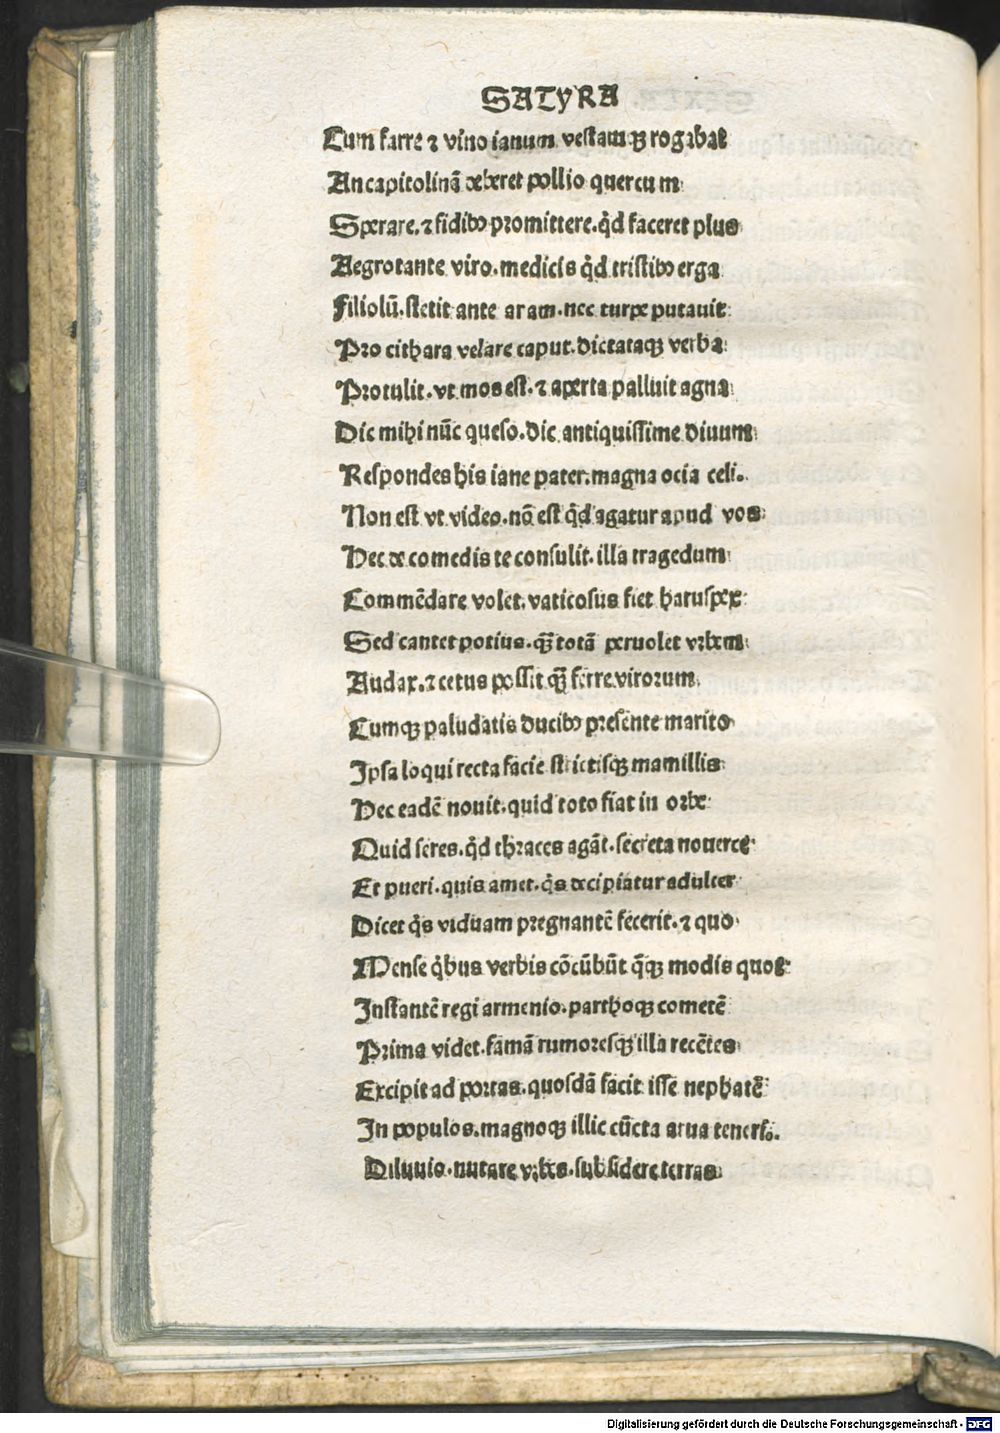 SATYRA
Cum farre ⁊ vino ianum vestamqꝫ rogabat
An capitolinā deberet pollio quercum
Sperare. ⁊ fidibꝰ promittere. qͥd faceret plus
Aegrotante viro. medicis qͥd tristibꝰ erga
Filiolū. stetit ante aram. nec turpe putauit
Pro cithara velare caput. dictataqꝫ verba
Protulit. vt mos est. ⁊ aperta palluit agna
Dic mihi nūc queso. dic antiquissime diuum
Respondes his iane pater. magna ocia celi.
Non est vt video. nō est qͥd agatur apud vos
Hec de comedis te consulit. illa tragedum
Commēdare volet. vaticosus fiet haruspex
Sed cantet potius. qꝫ totā peruolet vrbem
Audax. ⁊ cetus possit qꝫ ferre virorum
Cumqꝫ paludatis ducibꝰ presente marito
Ipsa loqui recta facie strictisqꝫ mamillis
Hec eadē nouit. quid toto fiat in orbe
Quid seres. qͥd thraces agāt. secreta nouerce
Et pueri. quis amet. qͥs decipiatur adulter
Dicet qͥs viduam pregnantē fecerit. ⁊ quo
Mense qͥbus verbis cōcūbūt q̄qꝫ modis quot
Instantē regi armenio. parthoqꝫ cometē
Prima videt. famā rumoresqꝫ illa recētes
Excipit ad portas. quosdā facit isse nephatē
In populos. magnoqꝫ illic cūcta arua teneri.
Diluuio. nutare vrbes. subsidere terras
Digitalisierung gefördert durch die Deutsche Forschungsgemeinschaft - DFG